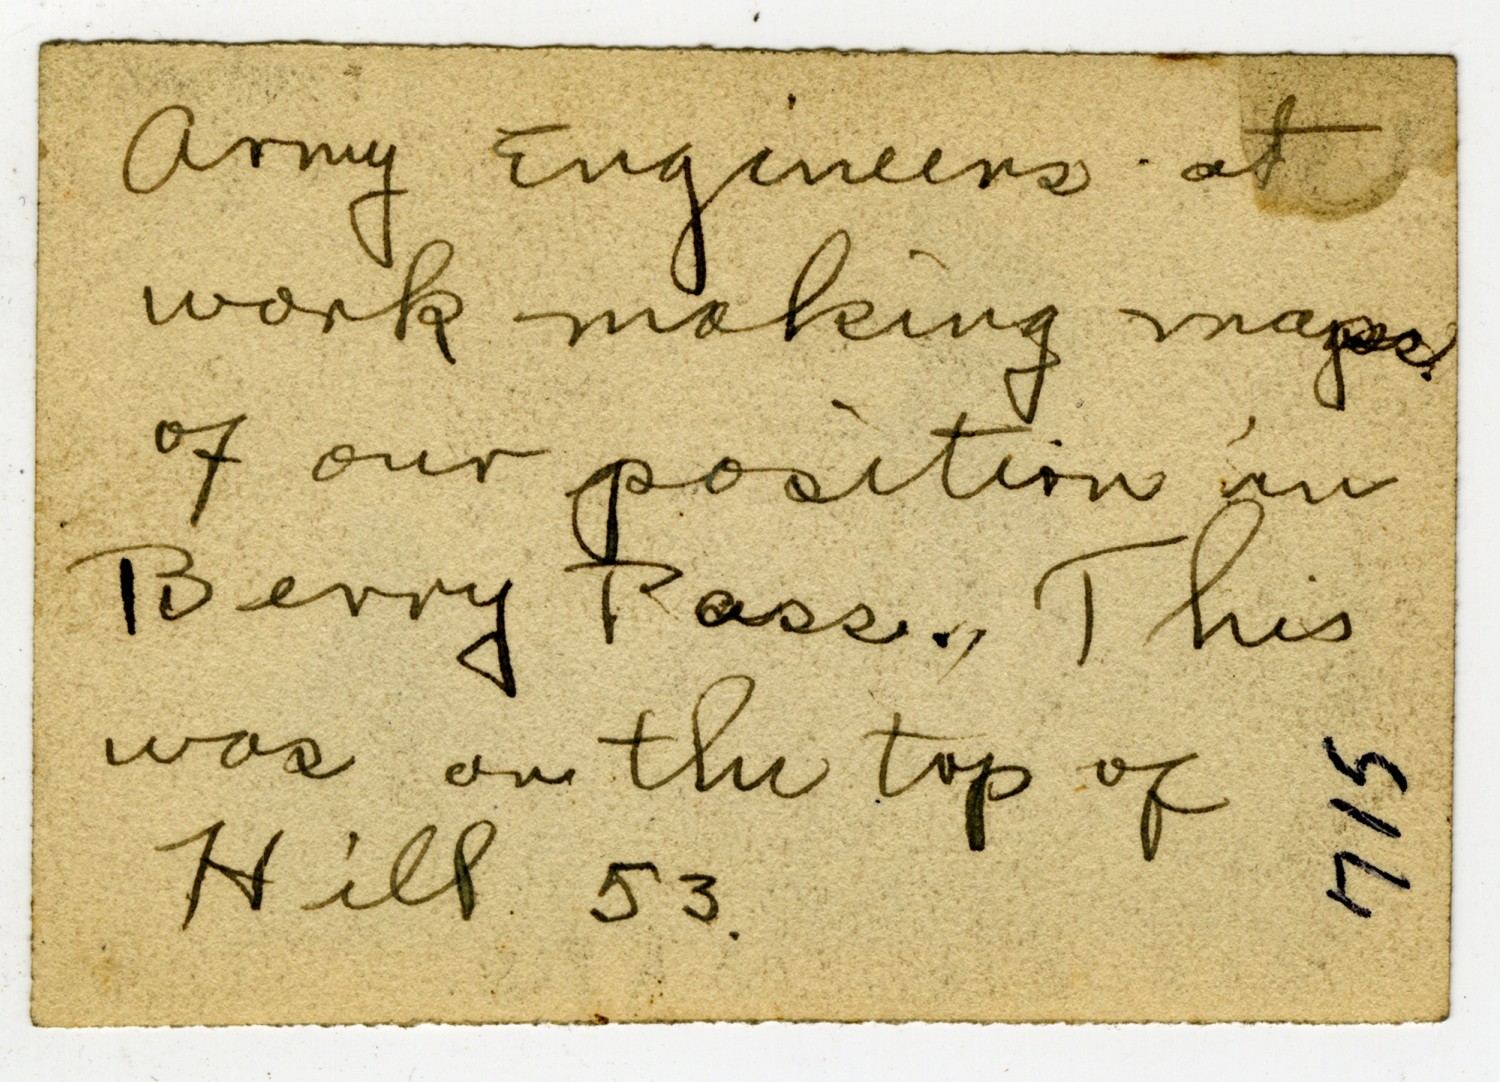 Army Engineers at
work making maps
of our position in
Berry Pass. This
was on the top of
Hill 53.
1715